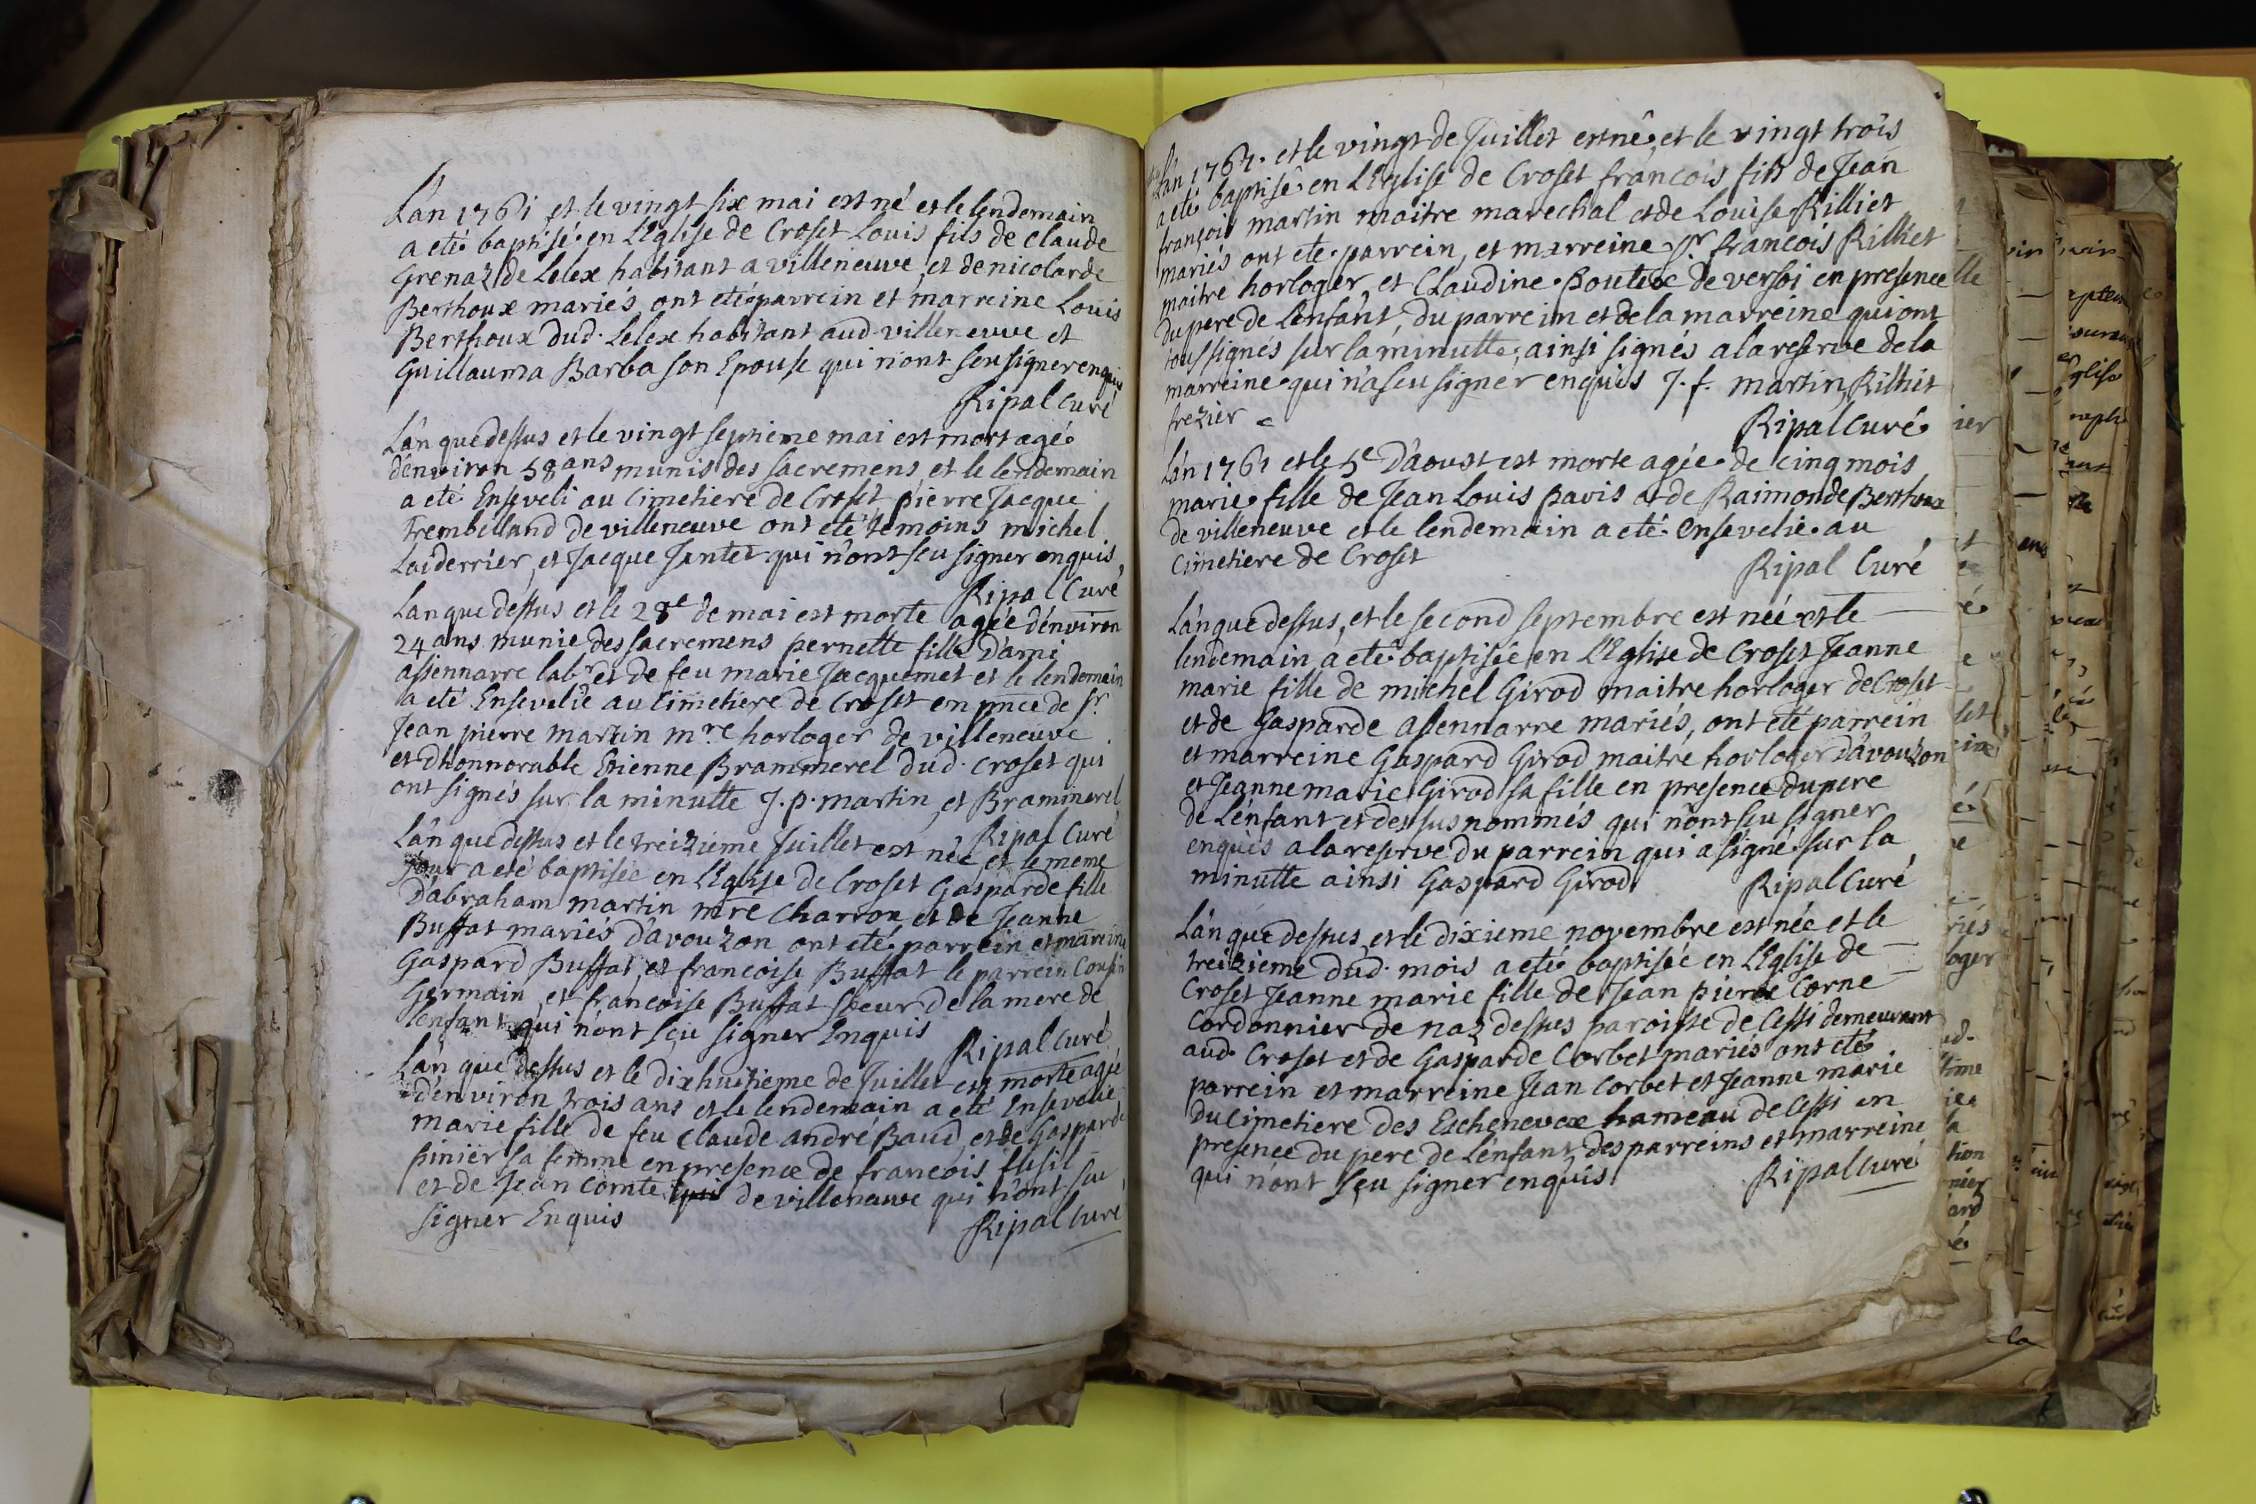 L'an 1761 et le vingt six mai est né et le lendemain
a eté baptisé en L'Eglise de Croset Louis fils de Claude
Grenaz de Lelex habitant a villeneuve et de nicolarde
Berthoux mariés ont eté parrein et marreine Louis
Berthoux dud. Lelex habitant aud villeneuve et
Guillauma Barba son Epouse qui n'ont seu signer enquis
Ripal curé
L'an que dessus et le vingt septieme mai est mort agé
d'environ 58 ans munis des sacremens et le lendemain
a eté Enseveli au Cimetiere de Croset pierre Jacque
trembelland de villeneuve ont eté temoins michel
Laiderrier, et Jacque Jantet qui n'ont seu signer enquis
Ripal Curé
L'an que dessus et le 28e de mai est morte agée d'environ
24 ans munie des sacremens pernette fille D'ami
assennarre labr et de feu marie Jacquemet et le lendemain
a eté Ensevelie au Cimetiere de Croset en pnce de sr.
Jean pierre martin mre horloger de villeneuve
et d'honnorable Etienne Brammerel dud. Croset qui
ont signés sur la minutte J. p. martin, et Brammerel
Ripal Curé
L'an que dessus et le treizieme Juillet est née et le meme
jour a eté baptisée en L'Eglise de Croset Gasparde fille
D'abraham martin mre Charron et de Jeanne
Buffat mariés d'avouzon ont eté parrein et marreine
Gaspard Buffat, et francoise Buffat le parrein Cousin
Germain, et francoise Buffat soeur de la mere de
lenfant qui n'ont seu signer Enquis
Ripal Curé
L'an que dessus et le dixhuitieme de Juillet est morte agée
d'environ trois ans et le lendemain a eté Ensevelie
marie fille de feu Claude andré Baud, et de Gasparde
pinier sa femme en presence de francois fusil
et de Jean Comte de villeneuve qui n'ont seu
signer Enquis
Ripal Curé
L'an 1761. et le vingt de Juillet est né, et le vingt trois
a eté baptisé en L'Eglise de Croset francois fils de Jean
françois martin maitre marechal et de Louise Rilliet
mariés ont eté parrein, et marreine sr. francois Rilliet
maitre horloger, et Claudine Bouteix de versoi en presence
du pere de l'enfant, du parrein et de la marreine qui ont
tous signés sur la minutte, ainsi signés a la reserve de la
marreine qui n'a seu signer enquis J. f. martin, Rilliet
frezier
Ripal Curé
L'an 1761 et le 5e D'aoust est morte agée de cinq mois
marie fille de Jean Louis pavis et de Raimonde Berthoux
de villeneuve et le lendemain a eté ensevelie au
Cimetiere de Croset
Ripal Curé
L'an que dessus, et le second septembre est née et le
lendemain a eté baptisée en L'Eglise de Croset Jeanne
marie fille de michel Girod maitre horloger de Croset
et de Gasparde assennarre mariés, ont eté parrein
et marreine Gaspard Girod maitre horloger d'avouzon
et Jeanne marie Girod sa fille en presence du pere
de l'enfant et des susnommés qui n'ont seu signer
enquis a la reserve du parrein qui a signé sur la
minutte ainsi Gaspard Girod
Ripal Curé
L'an que dessus, et le dixieme novembre est née et le
treizieme dud. mois a eté baptisée en L'Eglise de
Croset Jeanne marie fille de Jean pierre Corne
Cordonnier de naz dessus paroisse de Cessi demeurant
aud. Croset et de Gasparde Corbet mariés ont eté
parrein et marreine Jean Corbet et Jeanne marie
du Cimetiere des Eschenevex hameau de Cessi en
presence du pere de l'enfant, des parreins et marreine
qui n'ont seu signer enquis
Ripal Curé